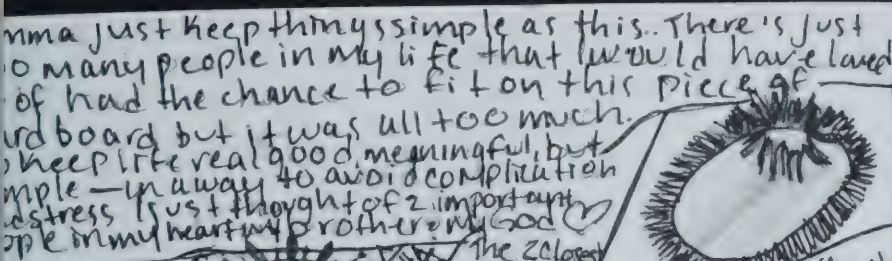 mma just keep things simple as this.. There's just
o many people in my life that I would have loved
of had the chance to fit on this piece of
rdboard but it was all too much.
keep life real good, meaningful, but
mple — in a way to avoid complication
stress I just thought of 2 important
ople in my heart my brother & my God
The 2 closest